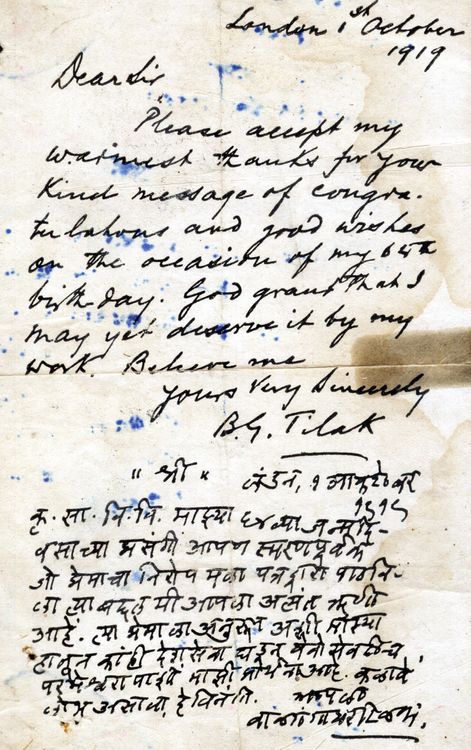 London 1st October
1919
Dear Sir
Please accept my
warmest thanks for your
kind message of congra-
tulations and good wishes
on the occasion of my 64th
birthday. God grant that I
may yet deserve it by my
work. Believe me
yours Very Sincerely
B. G. Tilak
"श्री"
लंडन, १ आक्टोबर
१९१९
कृ. सा. वि. वि. माझ्या ६४ व्या जन्मदि-
वसाच्या प्रसंगी आपण स्मरणपूर्वक
जो प्रेमाचा निरोप मला पत्रद्वारा पाठवि-
ला त्याबद्दल मी आपला अत्यंत ऋणी
आहें. त्या प्रेमाला अनुरूप अशी
हातून कांही देशसेवा घडून
परमेश्वरापाशी माझी प्रार्थना आहे. कळावे
लोभ असावा, हे विनंति. आपला
बाळ गंगाधर टिळक.